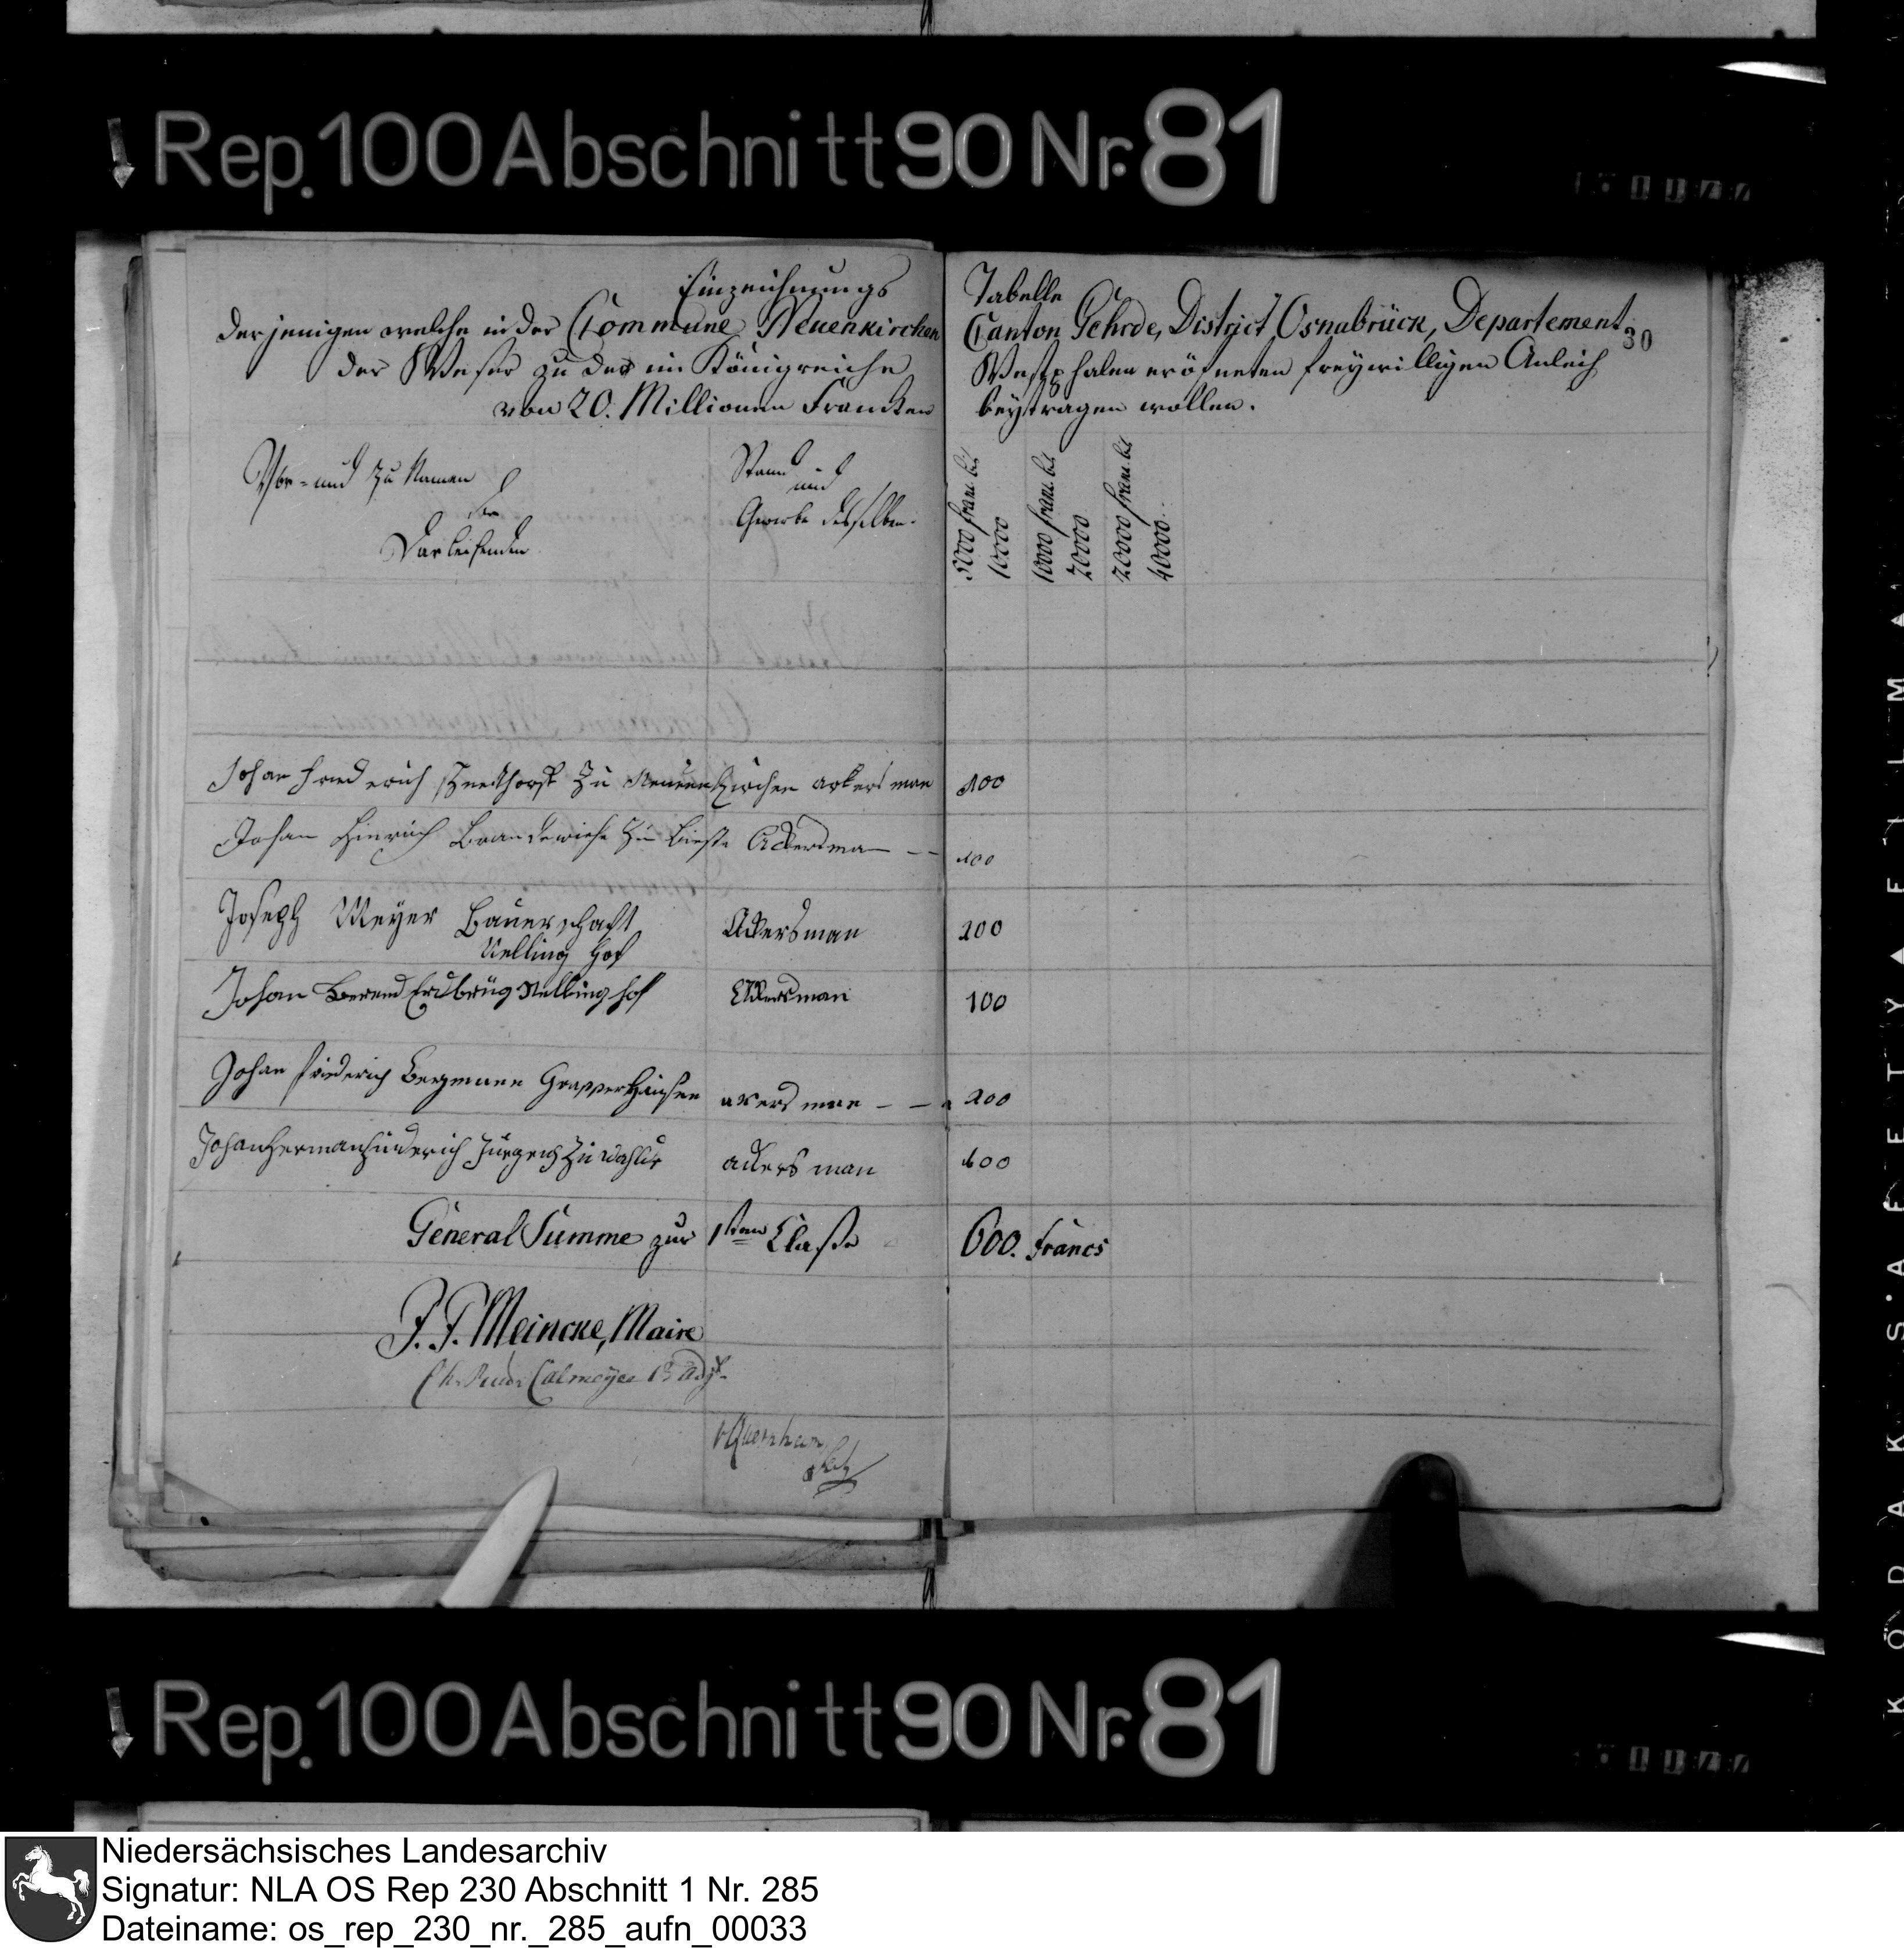 Rep. 100 Abschnitt 90 Nr. 81
Einzeichnungs Tabelle
derjenigen welche in der Commune Neuenkirchen Canton Gehrde, District Osnabrück, Departement
30
der Weser zu der im Königreiche Westphalen eröfneten freywilligen Anleih
von 20. Millionen Francken beytragen wollen.
Vor- und Zu Namen
der
Darleihenden
Stand
und
Gewerbe desselben.
5000 franc. bis
10000
10000 franc. bis
20000
20000 franc. bis
40000.
Johan Friederich zu Neuenkirchen ackersman 100
Johan Hinrich Brandewiehe zu Bieste Ackersman -- 100
Joseph Meyer Bauerschaft Ackersman 100
Nelling Hof
Johan Berend Erdbrüg Nellinghof Ackersman 100
Johan Friederich Bergmann Grapperhausen akersman - - 100
Johan Herman Hinderich Jürgens zu ackersman 100
General Summe zur 1sten Classe 600. Francs
J. F. Meincke, Maire
Calmeyer 1r Adjt.
Rep. 100 Abschnitt 90 Nr. 81
KODAK SAFETY FILM
Niedersächsisches Landesarchiv
Signatur: NLA OS Rep 230 Abschnitt 1 Nr. 285
Dateiname: os_rep_230_nr._285_aufn_00033